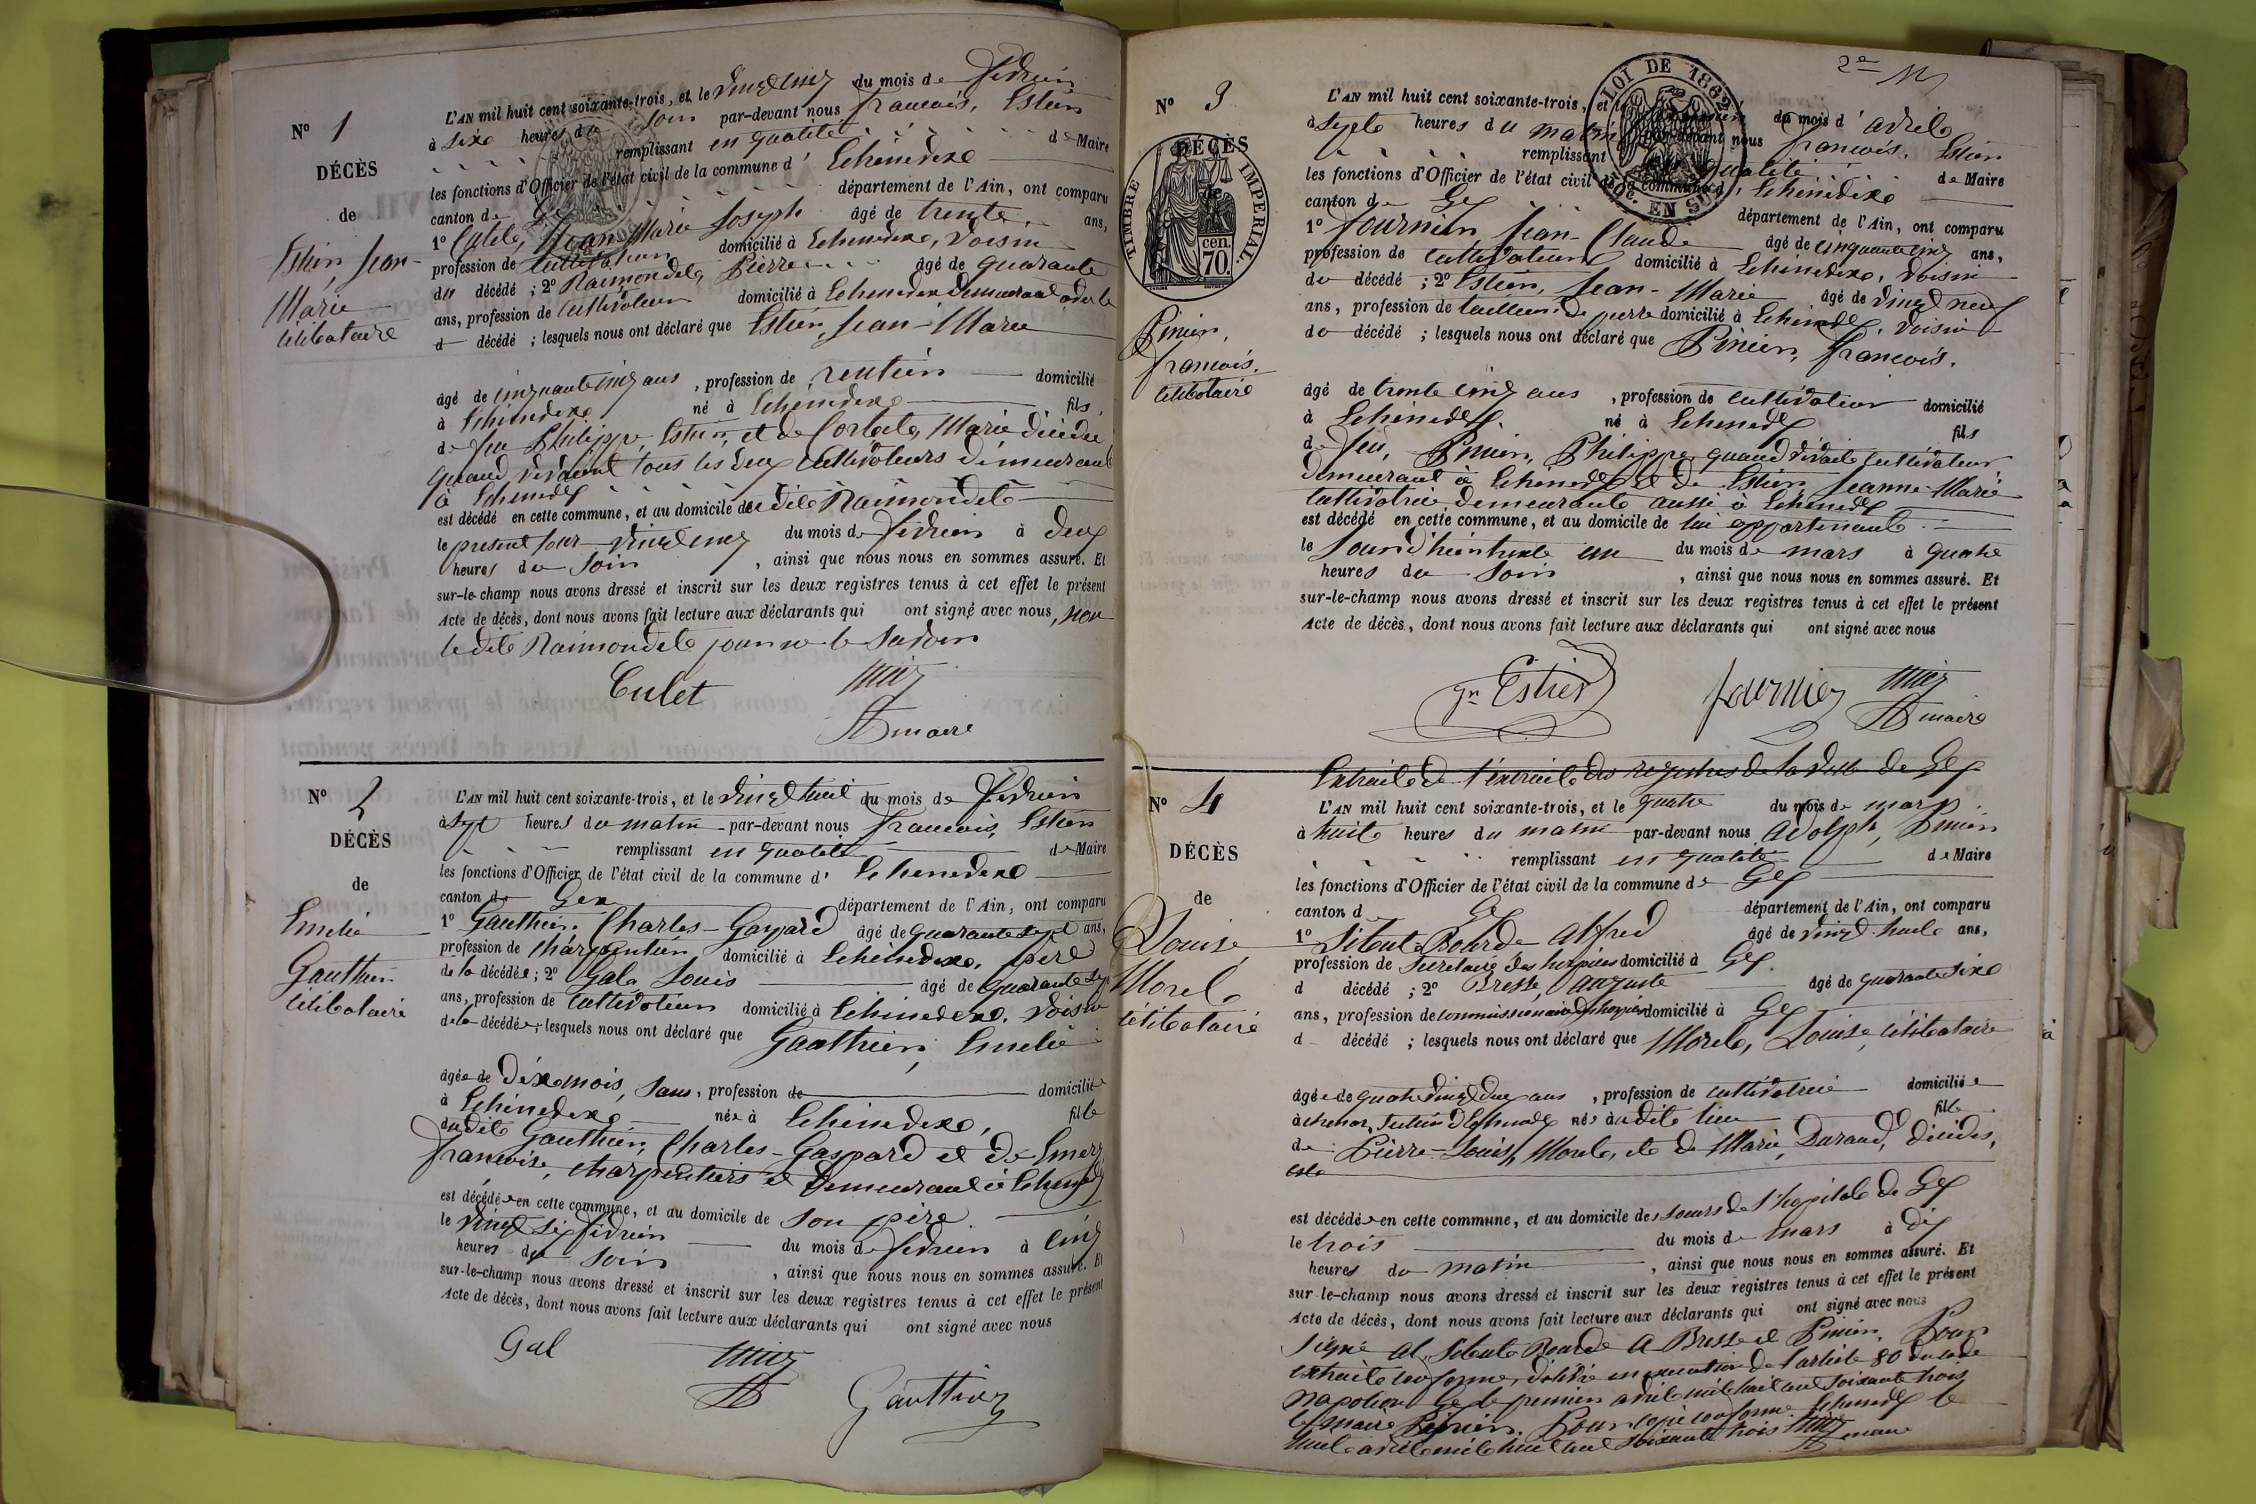 N° 1
DÉCÈS
de
Estier, Jean-
Marie
célibataire
L'AN mil huit cent soixante-trois, et le vingt cinq du mois de février
à sixe heures du soir par-devant nous françois, Estier
remplissant en qualité de Maire
les fonctions d'Officier de l'état civil de la commune d' Echenedexe
canton de Gex département de l'Ain, ont comparu
1° Cutet, Jean Marie Joseph âgé de trente ans,
profession de cultivateur domicilié à Echenedexe, voisin
du décédé ; 2° Raimondete, Pierre âgé de quarante
ans, profession de cultivateur domicilié à Echenedex demeurant
d décédé ; lesquels nous ont déclaré que Estier, Jean-Marie
âgé de cinquante cinq ans , profession de rentier domicilié
à Echenedexe né à Echenedexe fils
de feu Philippe, Estier, et de Marie décédée
quand vivaient tous les deux cultivateurs demeurant
à Echenedex
est décédé en cette commune, et au domicile de dite Raimondete
le présent jour vingt cinq du mois de février à deux
heures du soir , ainsi que nous nous en sommes assuré. Et
sur-le-champ nous avons dressé et inscrit sur les deux registres tenus à cet effet le présent
Acte de décès, dont nous avons fait lecture aux déclarants qui ont signé avec nous, non
ledite Raimondete pour ne le savoir
Cutet
maire
N° 2
DÉCÈS
de
Emelie
Gauthier
célibataire
L'AN mil huit cent soixante-trois, et le vingt huit du mois de février
à sept heures du matin par-devant nous françois, Estier
remplissant en qualité de Maire
les fonctions d'Officier de l'état civil de la commune d' Echenedexe
canton de Gex département de l'Ain, ont comparu
1° Gauthier, Charles-Gaspard âgé de quarante sept ans,
profession de charpentier domicilié à Echenedexe, père
de la décédée ; 2° Gala Louis âgé de quarante
ans, profession de cultivateur domicilié à Echenedexe, voisin
de la décédée ; lesquels nous ont déclaré que Gauthier, Emelie
âgée de dixe mois, sans, profession de domiciliée
à Echenedexe née à Echenedexe, fille
dudite Gauthier, Charles-Gaspard et de Emery
françoise, charpentiers et demeurant à Echenedex
est décédée en cette commune, et au domicile de son père
le vingt six février du mois de février à cinq
heures du soir , ainsi que nous nous en sommes assuré. Et
sur-le-champ nous avons dressé et inscrit sur les deux registres tenus à cet effet le présent
Acte de décès, dont nous avons fait lecture aux déclarants qui ont signé avec nous
Gal
Gauthier
2e
N° 3
DÉCÈS
de
TIMBRE IMPERIAL
70 cen.
LOI DE 1862
EN SUS
Pinier,
françois,
célibataire
L'AN mil huit cent soixante-trois, et le premier du mois d'avrile
à septe heures du matin par-devant nous françois, Estier
remplissant en qualité de Maire
les fonctions d'Officier de l'état civil de la commune d' Echenedexe
canton de Gex département de l'Ain, ont comparu
1° Fournier, Jean-Claude âgé de cinquante cinq ans,
profession de cultivateur domicilié à Echenedexe, voisin
du décédé ; 2° Estier, Jean-Marie âgé de vingt neuf
ans, profession de tailleur de pierre domicilié à Echenedex, voisin
du décédé ; lesquels nous ont déclaré que Pinier, françois,
âgé de trente cinq ans , profession de cultivateur domicilié
à Echenedex né à Echenedex fils
de feu, Pinier, Philippe, quand vivait cultivateur
demeurant à Echenedex et de Estier, Jeanne-Marie
cultivatrice demeurante aussi à Echenedex
est décédé en cette commune, et au domicile de lui appartenant
le jour d'hier trente un du mois de mars à quatre
heures du soir , ainsi que nous nous en sommes assuré. Et
sur-le-champ nous avons dressé et inscrit sur les deux registres tenus à cet effet le présent
Acte de décès, dont nous avons fait lecture aux déclarants qui ont signé avec nous
Jn Estier fournier
maire
Extraite de l'extraite des registres de la ville de Gex
N° 4
DÉCÈS
de
Louise
Morele
célibataire
L'AN mil huit cent soixante-trois, et le quatre du mois de mars
à huite heures du matin par-devant nous adolphe, Pinier
remplissant en qualité de Maire
les fonctions d'Officier de l'état civil de la commune de Gex
canton d Gex département de l'Ain, ont comparu
1° Bourde Alfred âgé de vingt huite ans,
profession de secretaire des hospices domicilié à Gex
d décédé ; 2° Bresse, auguste âgé de quarante sixe
ans, profession de commissionnaire domicilié à Gex
d décédé ; lesquels nous ont déclaré que Morele, Louise, célibataire
âgée de quatre vingt deux ans , profession de cultivatrice domiciliée
née audite lieu fille
de Pierre-Louis, Morele, et de Marie, Durand, décédés,
est décédée en cette commune, et au domicile des sœurs de l'hopitale de Gex
le trois du mois de mars à dix
heures du matin , ainsi que nous nous en sommes assuré. Et
sur-le-champ nous avons dressé et inscrit sur les deux registres tenus à cet effet le présent
Acte de décès, dont nous avons fait lecture aux déclarants qui ont signé avec nous
Signé al. Bourde A Bresse et Pinier. Pour
extraite conforme, délivré en execution de l'article 80 du code
napoleon Gex le premier avrile mil huit cent soixante trois
le maire Pinier. Pour copie conforme Echenedex le
huite avrile mile huit cent soixante trois maire